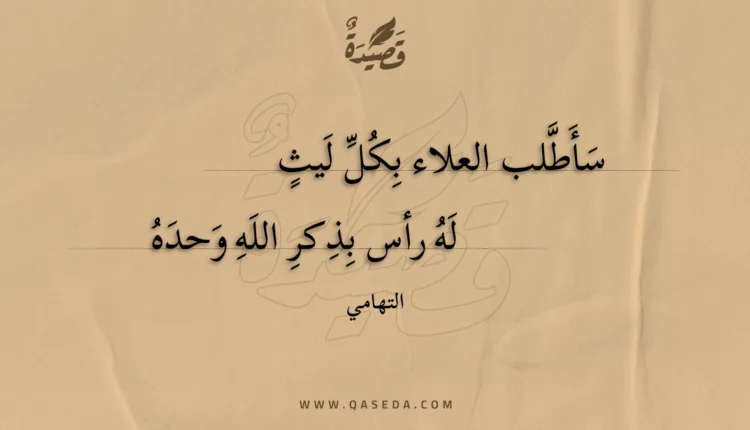 قَصِيدَةٌ
سَأَطَّلب العلاء بِكُلِّ لَيثٍ
لَهُ رأس بِذِكرِ اللَهِ وَحدَهُ
التهامي
WWW.QASEDA.COM